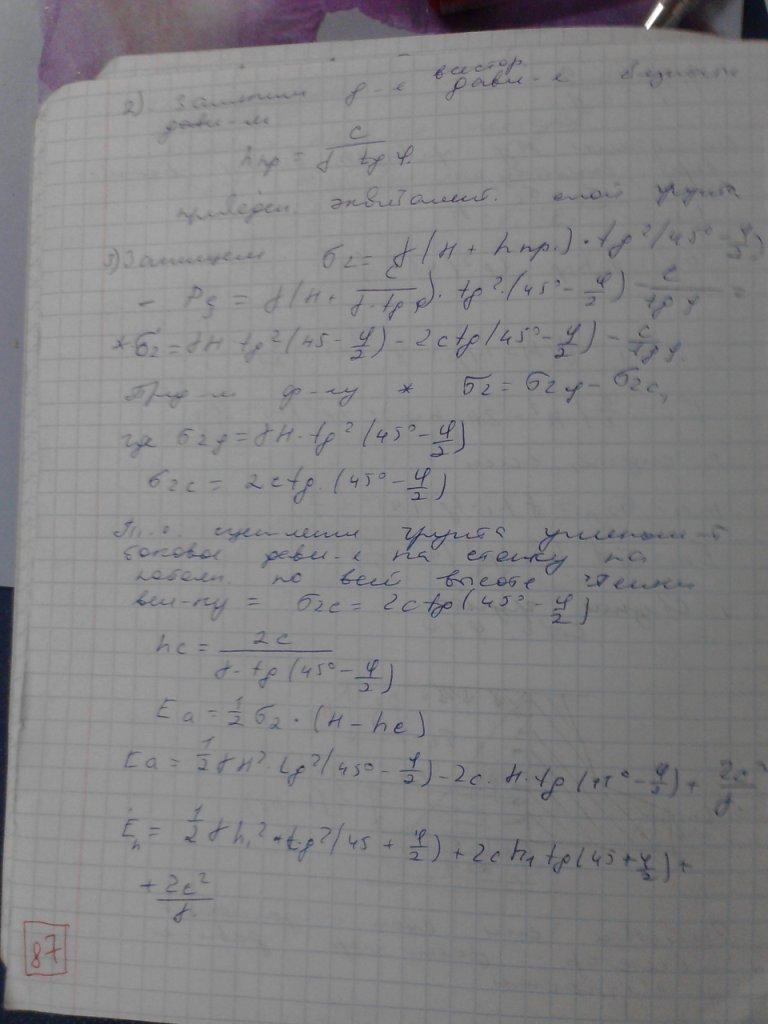 2) Заменим д-е всестор
дави-е
дави-м
hпр = c / γ tg φ.
приведен. эквивалент. слой грунта
3) Запишем σ2 = γ(H + hпр.) · tg²(45° − φ/2)
− Pg = γ(H + c / γ·tg φ) · tg²·(45° − φ/2) − c / tg φ =
* σ2 = γH tg²(45 − φ/2) − 2c tg(45° − φ/2) − c / tg φ.
ф-лу * σ2 = σ2φ − σ2c,
где σ2φ = γH · tg²(45° − φ/2)
σ2c = 2c tg. (45° − φ/2)
Т.о. сцепление грунта уменьш-т
боковое дави-е на стенку на
по всей высоте стенки
вел-ну = σ2c = 2c tg(45° − φ/2)
hc = 2c / γ · tg(45° − φ/2)
Ea = 1/2 σ2 · (H − hc)
Ea = 1/2 γH² · tg²(45° − φ/2) − 2c · H · tg(45° − φ/2) + 2c² / γ.
Eп = 1/2 γh₁² · tg²(45 + φ/2) + 2c h₁ tg(45 + φ/2) +
+ 2c² / γ.
87